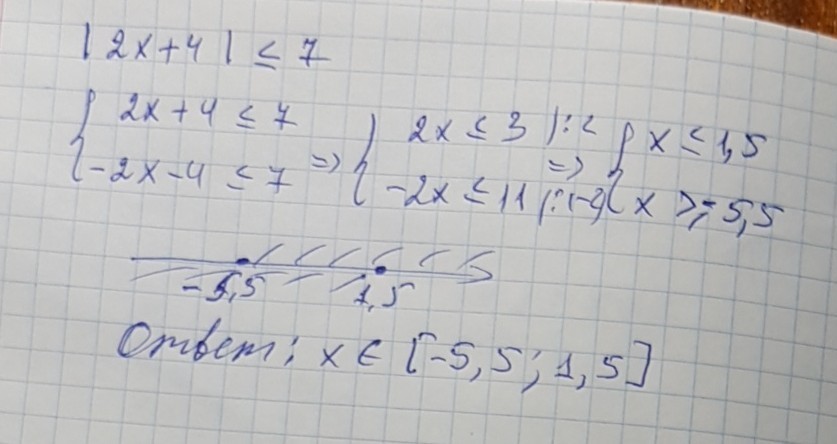 |2x+4| ≤ 7
{ 2x+4 ≤ 7
{ -2x-4 ≤ 7 => { 2x ≤ 3 |:2
{ -2x ≤ 11 |:(-2) => { x ≤ 1,5
{ x ≥ -5,5
-5,5 1,5
Ответ: x ∈ [-5,5; 1,5]